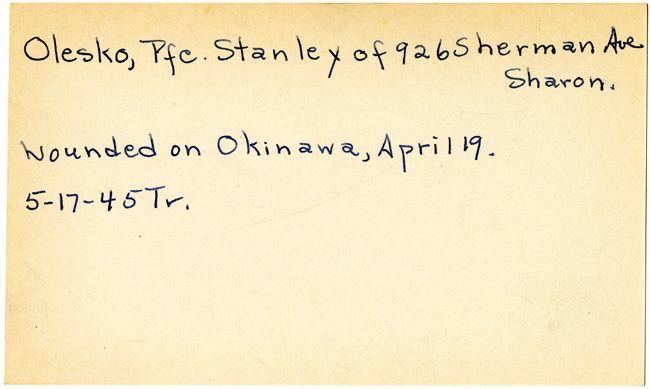 Olesko, Pfc. Stanley of 926 Sherman Ave
Sharon.
Wounded on Okinawa, April 19.
5-17-45 Tr.